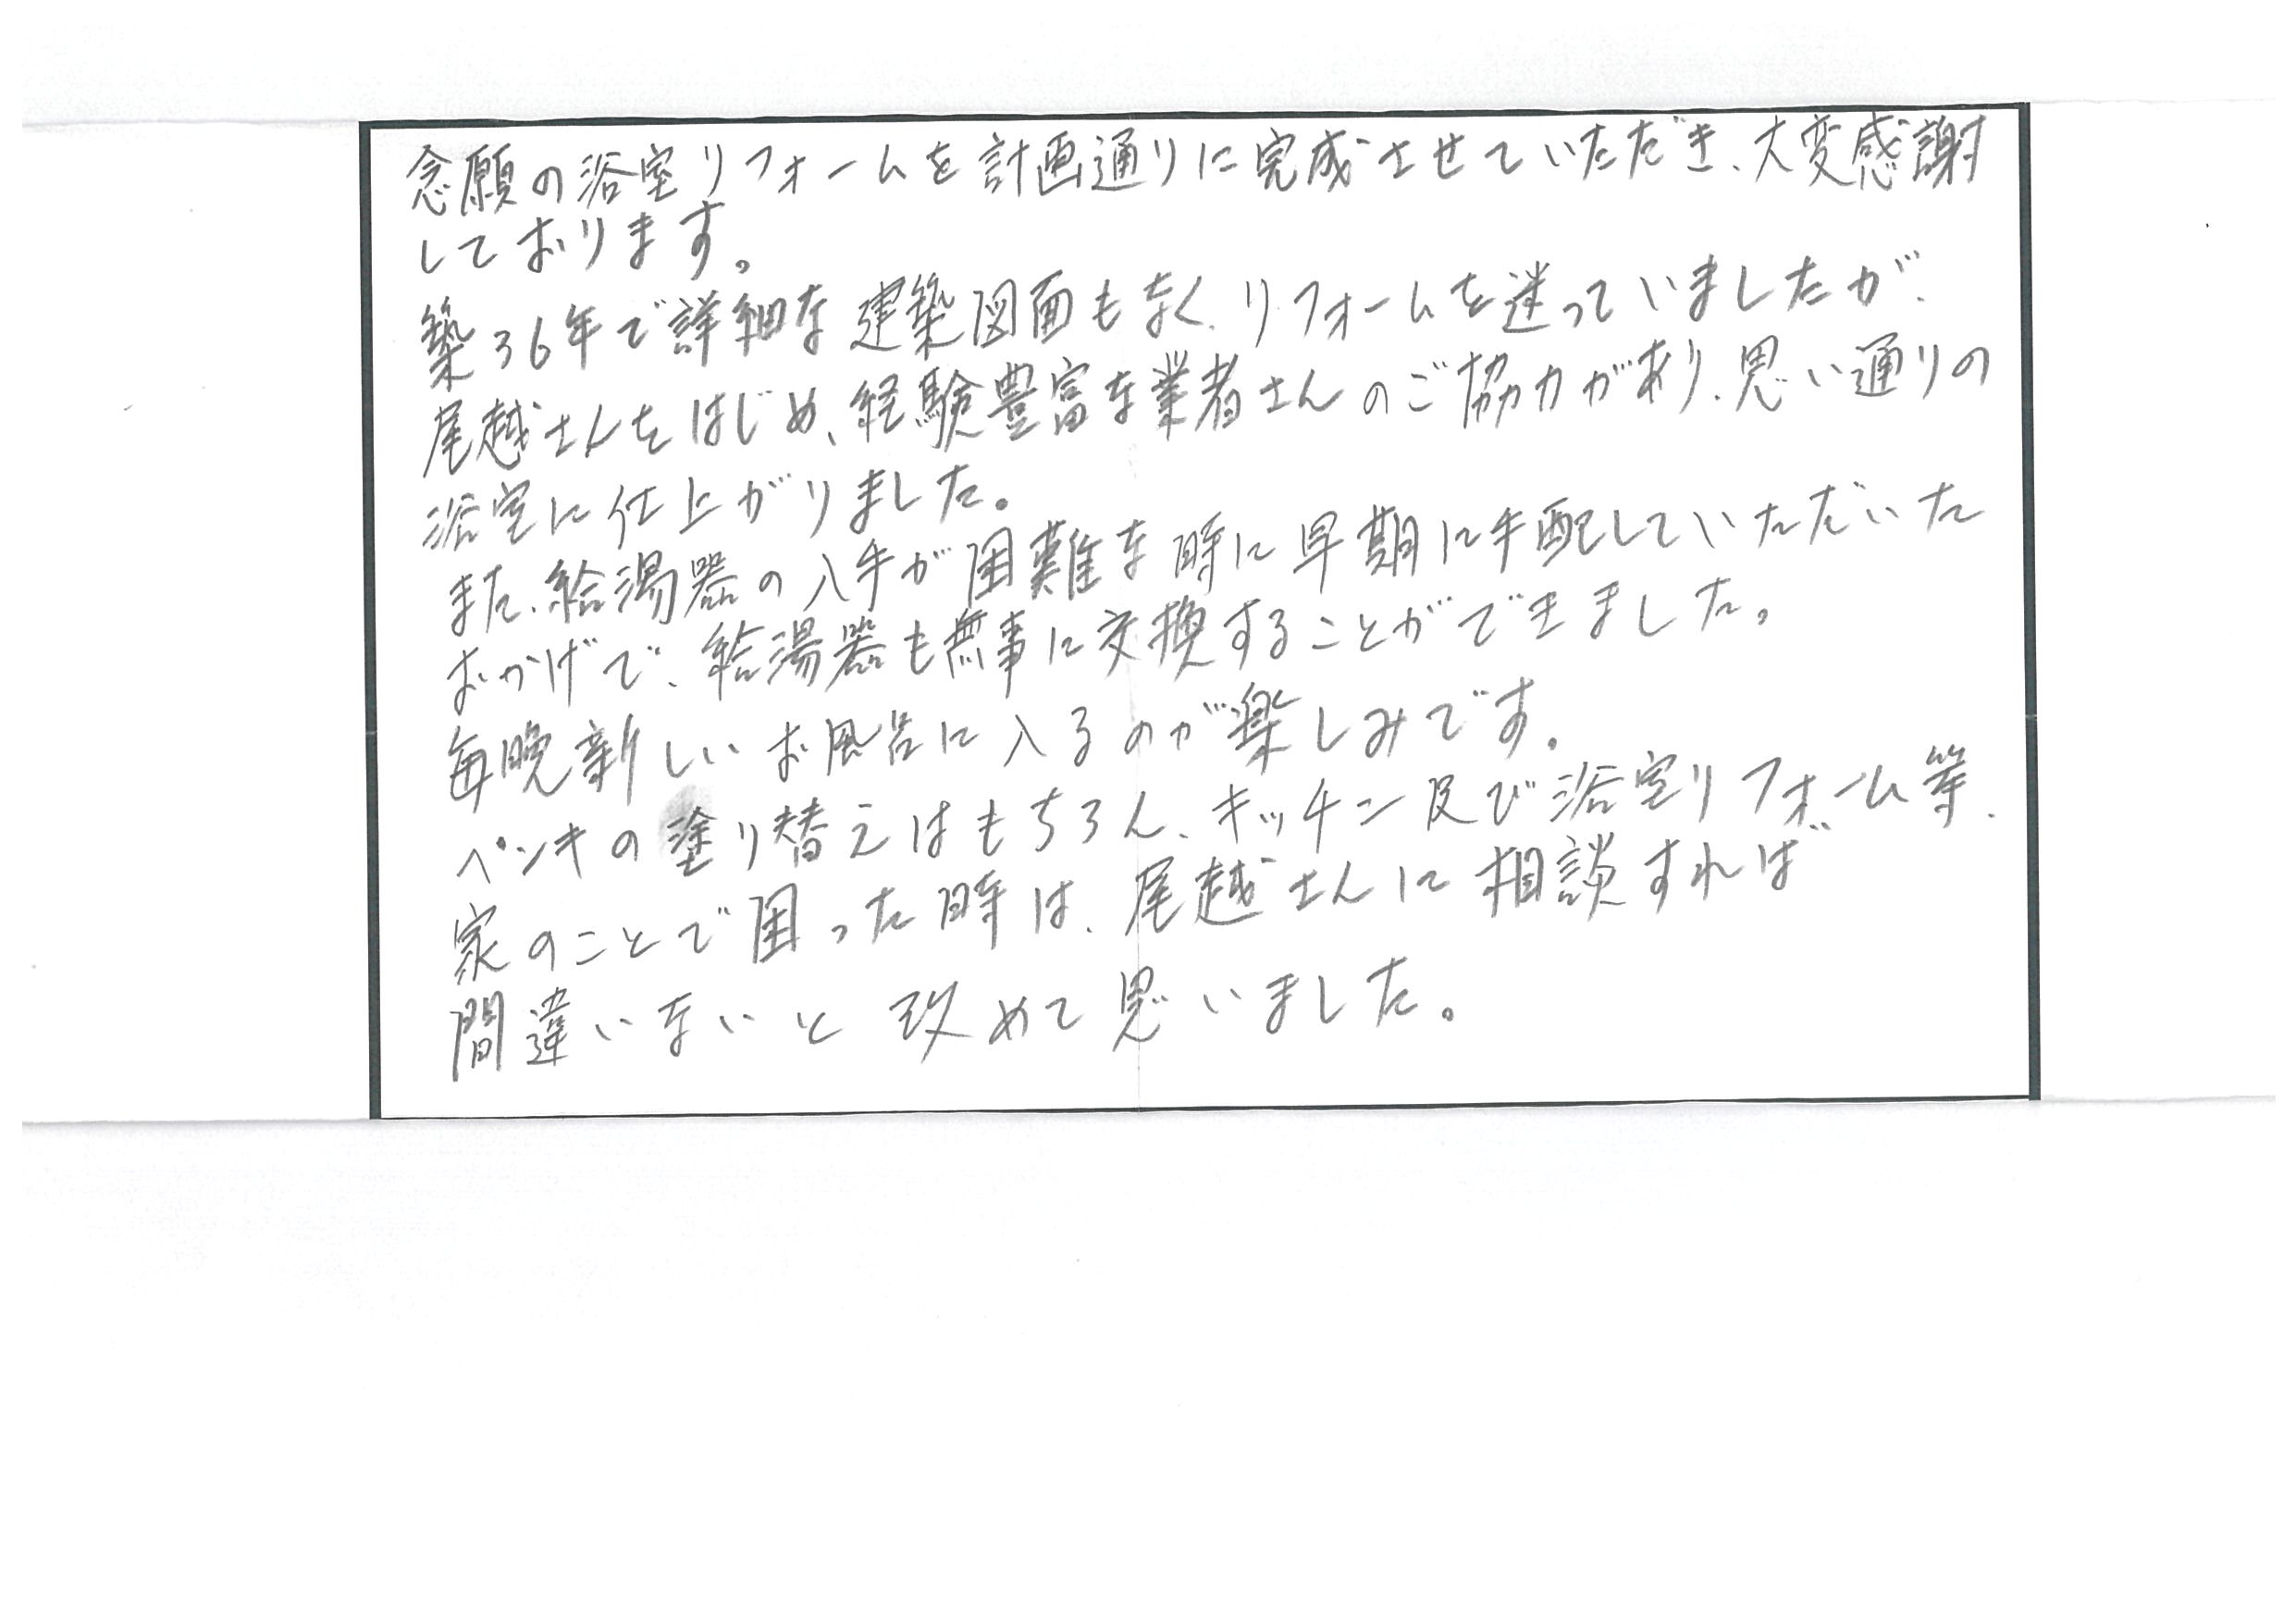 念願の浴室リフォームを計画通りに完成させていただき、大変感謝
しております。
築36年で詳細な建築図面もなく、リフォームを迷っていましたが、
尾越さんをはじめ、経験豊富な業者さんのご協力があり、思い通りの
浴室に仕上がりました。
また、給湯器の入手が困難な時に早期に手配していただいた
おかげで、給湯器も無事に交換することができました。
毎晩新しいお風呂に入るのが楽しみです。
ペンキの塗り替えはもちろん、キッチン及び浴室リフォーム等、
家のことで困った時は、尾越さんに相談すれば
間違いないと改めて思いました。